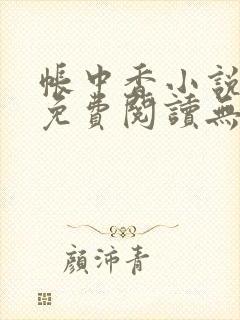 帳中香小說
免費閱讀無
顏沛青